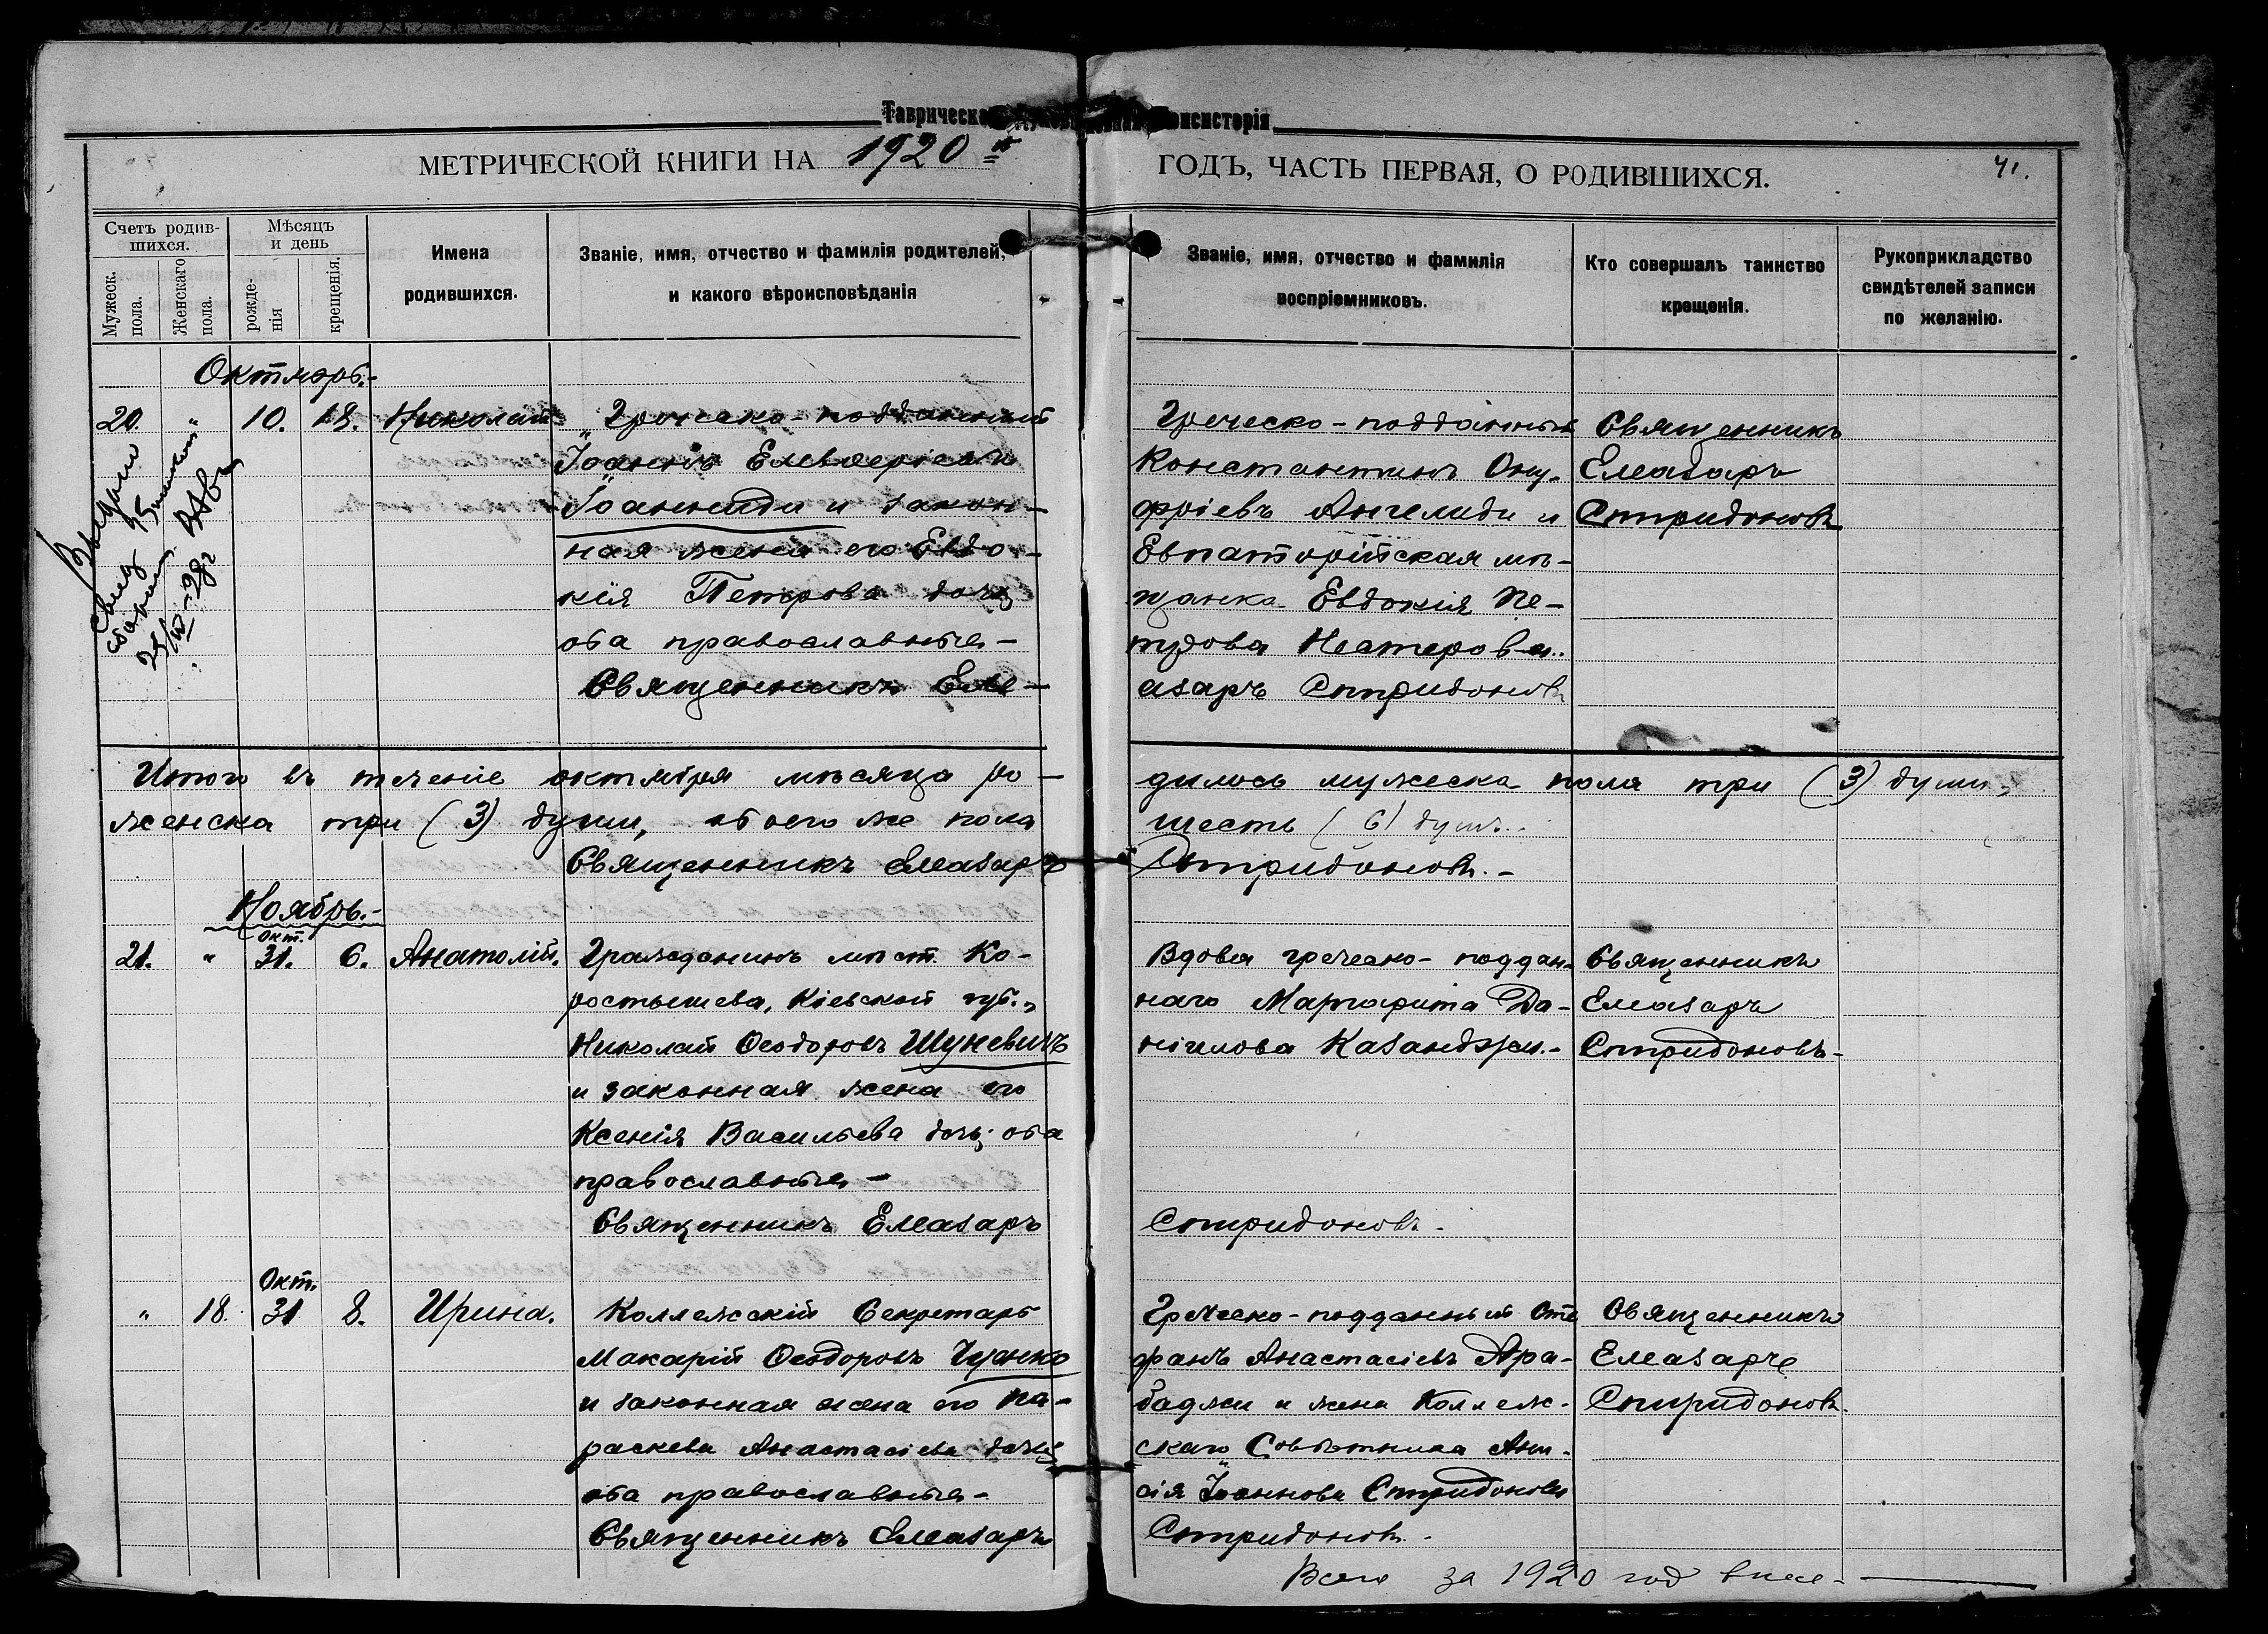 Таврическа
онсисторія
МЕТРИЧЕСКОЙ КНИГИ НА 1920 й
ГОДЪ, ЧАСТЬ ПЕРВАЯ, О РОДИВШИХСЯ.
41.
Счетъ родив-
шихся.
Мужеск.
пола.
Женскаго
пола.
Мѣсяцъ
и день
рожде-
нія
крещенія.
Имена
родившихся.
Званіе, имя, отчество и фамилія родителей,
и какого вѣроисповѣданія
Званіе, имя, отчество и фамилія
воспріемниковъ.
Кто совершалъ таинство
крещенія.
Рукоприкладство
свидѣтелей записи
по желанію.
Октябрь.-
20. " 10. 18. Николай
Греческо-подданный
Іоаннъ Елевѳеріевъ
Іоанниди и закон-
ная жена его Евдо-
кія Петрова дочь
оба православные-
Священникъ Елe-
Выдано
Греческо-подданный
Константинъ Ону-
фріевъ Ангелиди и
Евпаторійская мѣ-
щанка Евдокія Пе-
трова Нестерова..
азаръ Спиридоновъ
Священникъ
Елеазаръ
Спиридоновъ
Итого въ теченіе октября мѣсяца ро-
дилось мужеска пола три (3) души,
женска три (3) души, обоего же пола
шесть (6) душъ.
Священникъ Елеазаръ
Спиридоновъ.-
Ноябрь.-
21. " Окт. 31. 6. Анатолій.
Гражданинъ мѣст. Ко-
ростышева, Кіевской губ.,
Николай Ѳеодоровъ Шуневичъ
и законная жена его
Ксенія Васильева дочь; оба
православные-
Священникъ Елеазаръ
Вдова греческо-поддан-
наго Маргарита Да-
ніилова Казанджи.-
Спиридоновъ.
Священникъ
Елеазаръ
Спиридоновъ-
" 18. Окт. 31 8. Ирина.
Коллежскій Секретарь
Макарій Ѳеодоровъ Чуенко
и законная жена его Па-
раскева Анастасіева дочь
оба православные-
Священникъ Елеазаръ
Греческо-подданный Сте
фанъ Анастасіевъ Ара-
баджи и жена Коллеж-
скаго Совѣтника Ани-
сія Іоаннова Спиридонова
Спиридоновъ.
Священникъ
Елеазаръ
Спиридоновъ.
Всего за 1920 год внесе-